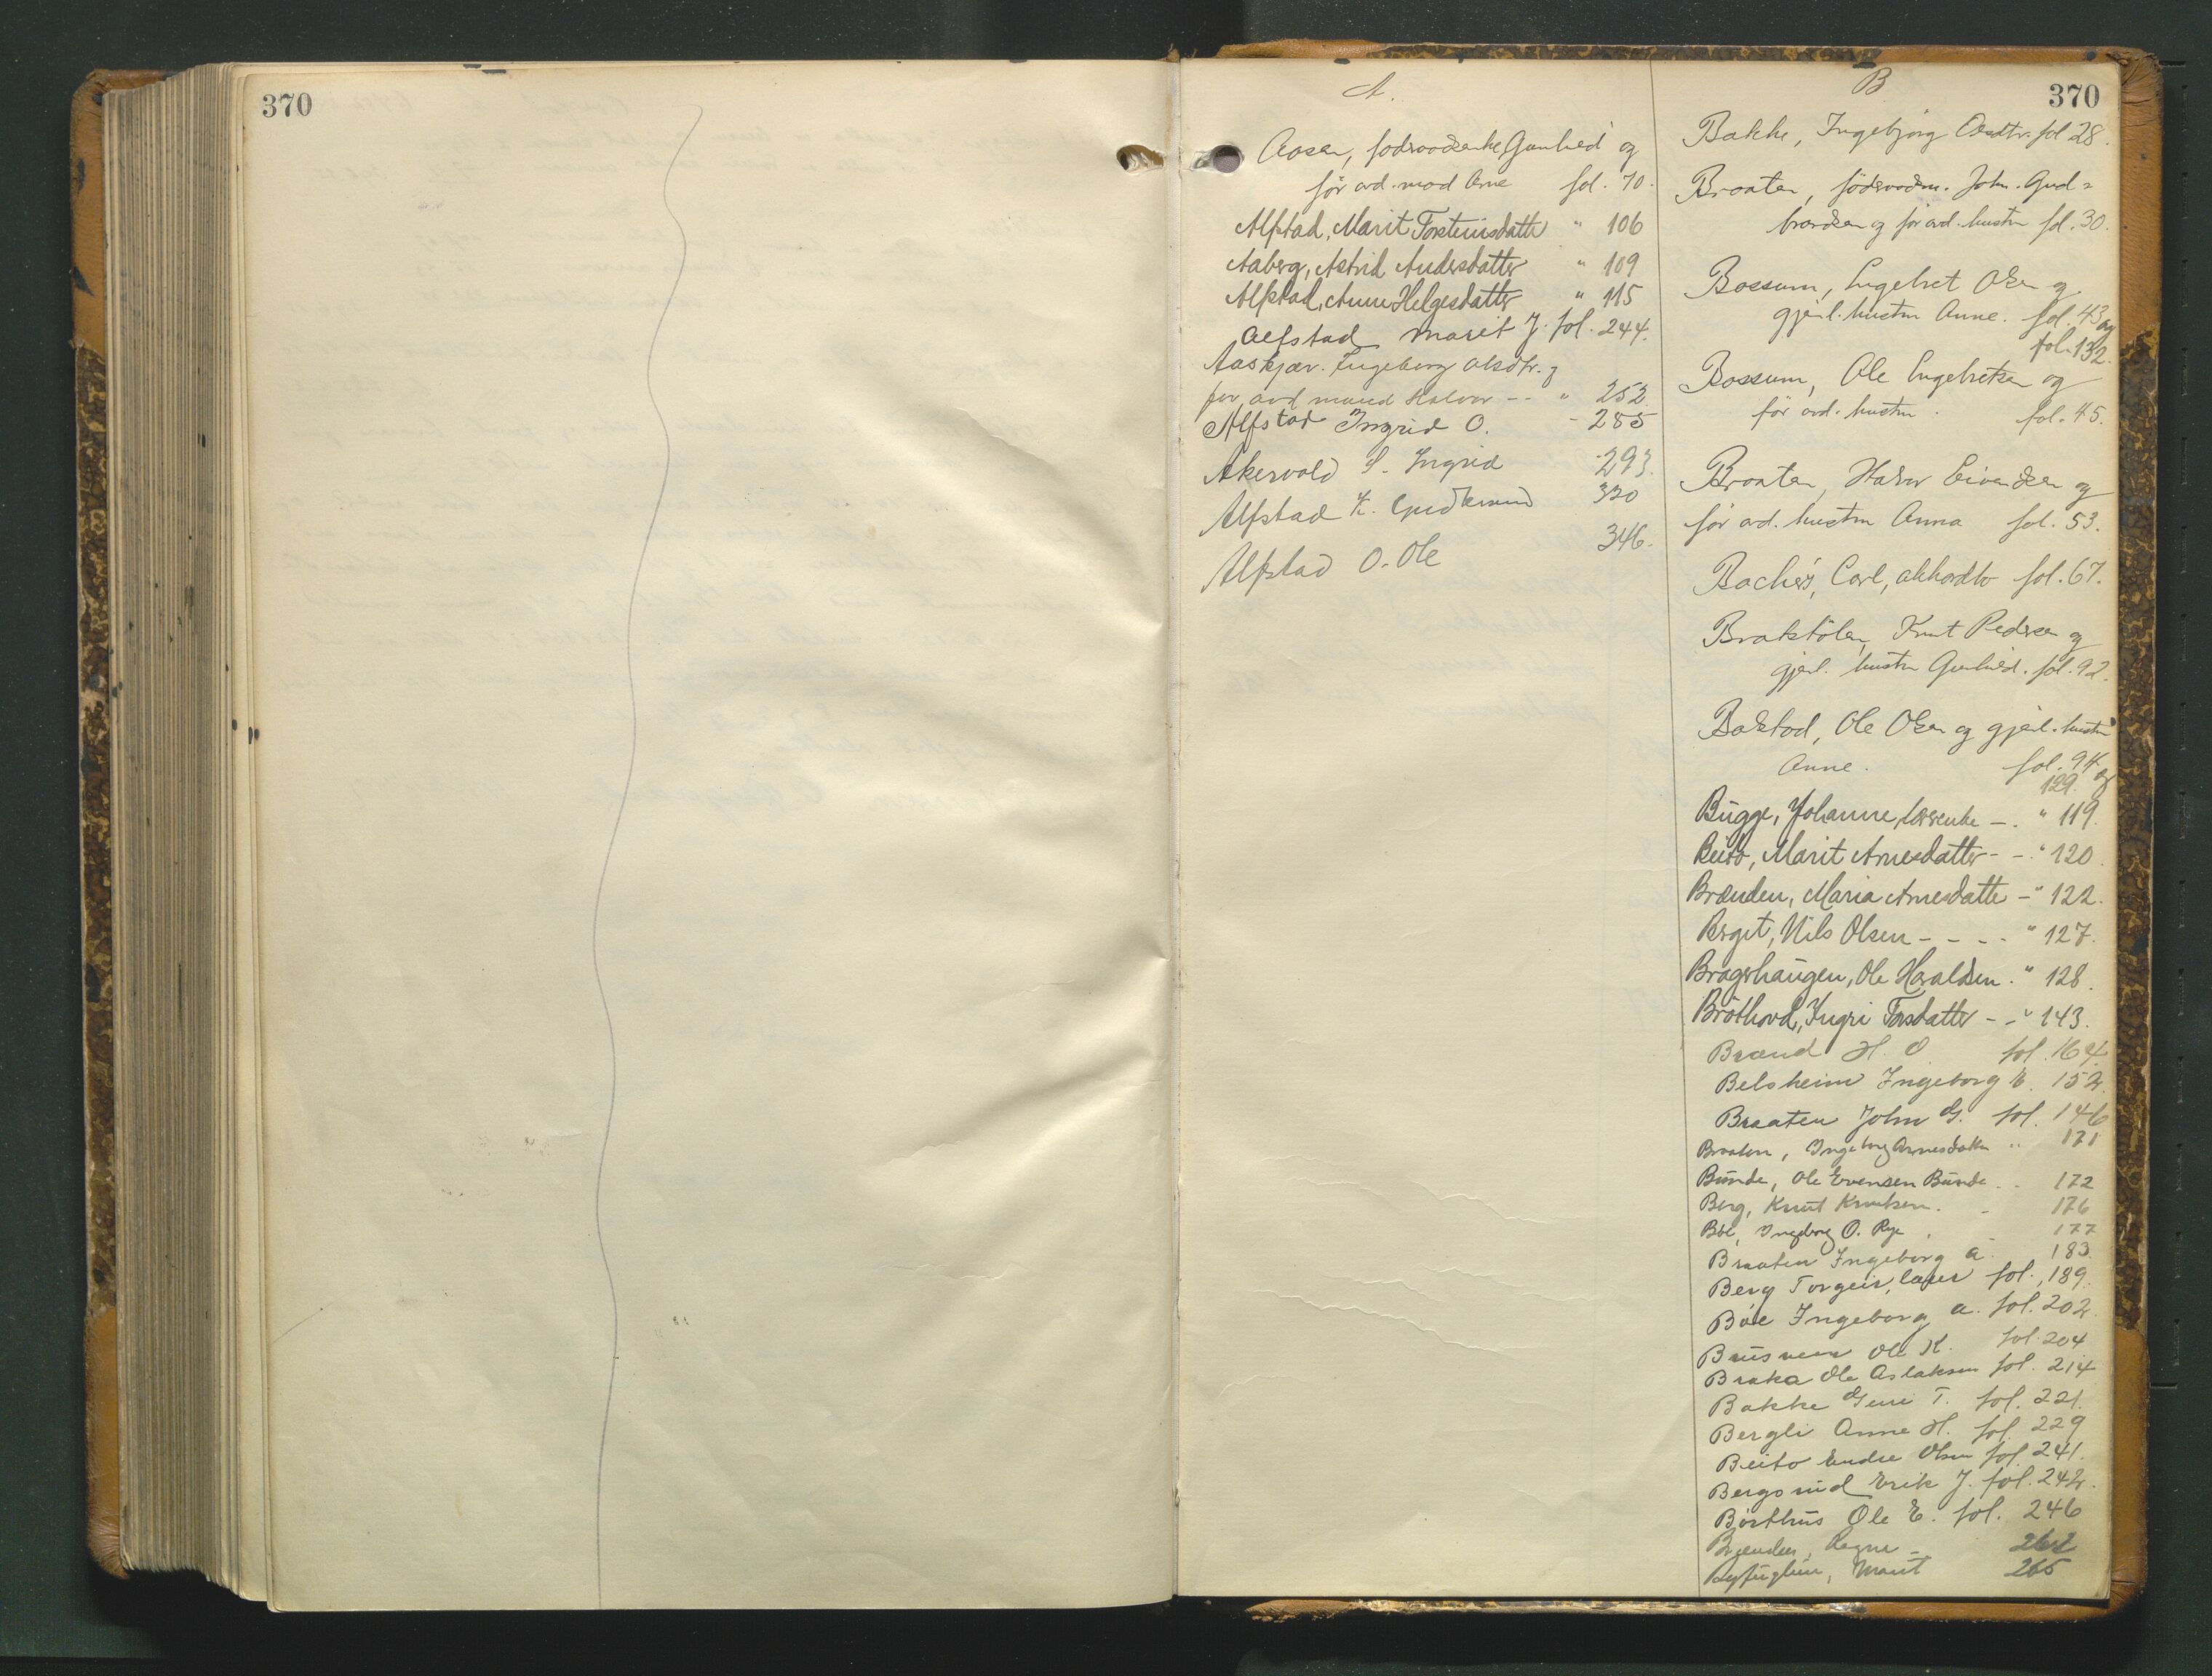 370
370
A.
Aasen, föderaadsenke Gunhild og
før avd. mand Arne fol. 70.
Alfstad, Marit Torsteinsdatter " 106
Aaberg, Astrid Andersdatter " 109
Alfstad, Anne Helgesdatter " 115
Alfstad Marit J. fol. 244.
Aaskjær. Ingeborg Olsdtr. og
før avd mand Halvor -- " 252.
Alfstad Ingrid O. - 285
Akervold S. Ingrid - 293.
Alfstad K. Gudbrand 330
Alfstad O. Ole 346.
B
Bakke, Ingebjørg Olsdtr. fol 28.
Braaten, föderaadsm. John Gud=
brandsen og før avd. hustru fol. 30.
Bossum, Engebret Olsen og
gjenl. hustru Anne. fol. 43 og
fol. 132.
Bossum, Ole Engebretsen og
før avd. hustru. fol. 45.
Braaten, Halvor Eivendsen og
før avd. hustru Anna fol. 53.
Bache's, Carl, akkordbo fol. 67.
Brakstölen, Knut Pedersen og
gjenl. hustru Gunhild. fol. 92.
Bakstad, Ole Olsen og gjenl. hustru
Anne. fol. 94 og
129.
Bugge, Johanne, lærerenke -. " 119.
Beito, Marit Arnesdatter - -. " 120.
Brænden, Maria Arnesdatter - " 122.
Berget, Nils Olsen - - - - " 127.
Bragerhaugen, Ole Haraldsen. " 128.
Bröthovd, Ingri Torsdatter - - " 143.
Brænd H. O. fol. 164.
Belsheim Ingeborg E. 152.
Braaten John G. fol. 146
Braaten, Ingeborg Arnesdatter " 171
Bunde, Ole Evensen Bunde. - 172
Berg, Knut Knutsen. - 176
Böe, Ingeborg O. Rye 177
Braaten Ingeborg A. 183.
Berg Torgeir, lærer fol. 189.
Böe Ingeborg A. fol. 202.
Brusveen Ole K. fol. 204
Braka Ole Aslaksen fol. 214
Bakke Guri T. fol. 221.
Bergli Anne H. fol. 229
Beito Endre Olsen fol. 241.
Bergsrud Erik J. fol. 242.
Börthus Ole E. fol. 246
Brænden, Ragne -
Byfuglien, Marit 265